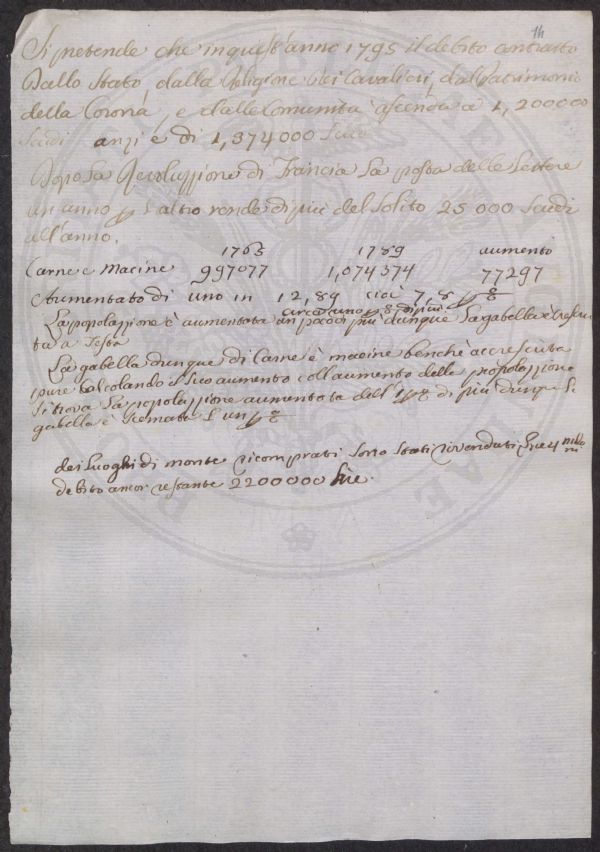 14
Si pretende che in quest'anno 1795 il debito contratto
dallo Stato, dalla Religione dei Cavalieri, dal Patrimonio
della Corona, e dalle Comunità ascenda a 1,200000
Scudi anzi è di 1,374000 Scudi
Dopo la Revoluzzione di Francia la posta delle Lettere
un anno l'altro rende di più del solito 25000 Scudi
all'anno.
1763 1789 aumento
Carne e Macine 997077 1,074374 77297
Aumentato di uno in 12,89 cioè 7,8
circa uno di più
La popolazzione è aumentata un poco di più dunque la gabella è
ta a testa
La gabella dunque di carne è macine benchè accresciuta
pure calcolando il suo aumento coll'aumento della popolazzione
si trova la popolazzione aumentata dell' di più dunque la
gabella è scemata un
dei Luoghi di monte ricomprati sono stati rivenduti
debito ancor restante 2200000 lire.